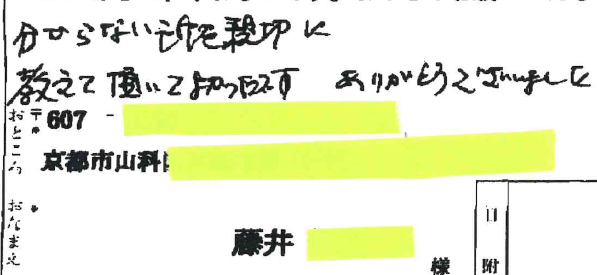 分からない所を親切に
教えて頂いてよかったです ありがとうございました
おところ
〒607 -
京都市山科
おなまえ
藤井
様
日附